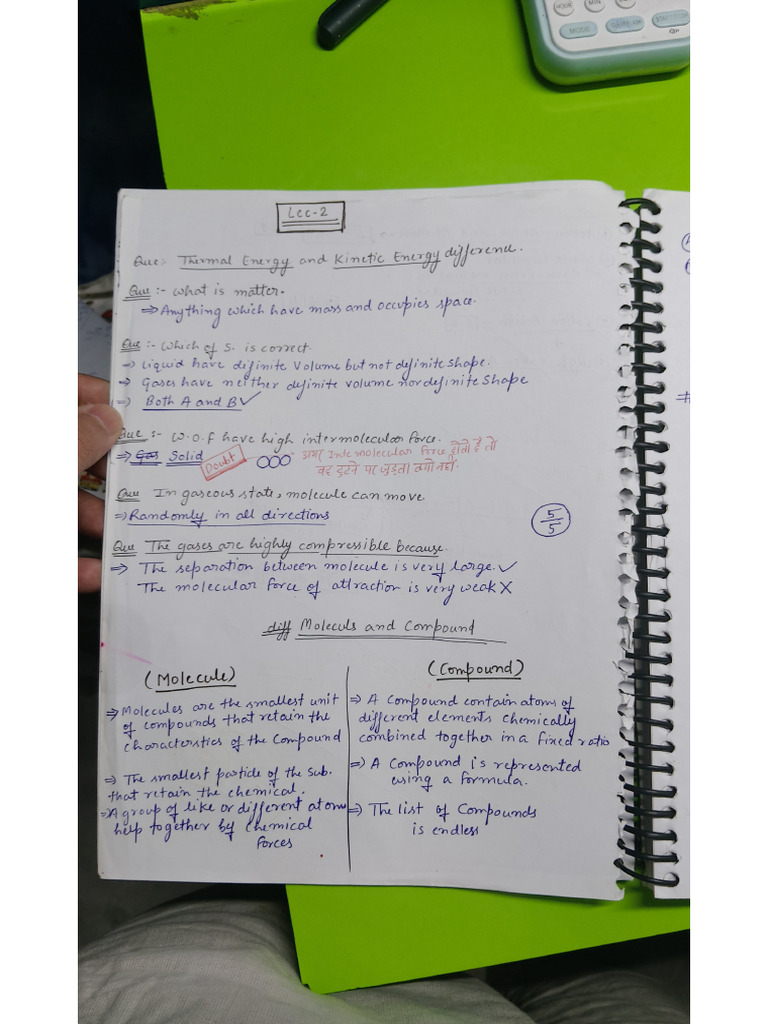 HOUR MIN
MODE
Lec-2
Que:- Thermal Energy and Kinetic Energy difference.
Que :- What is matter.
⇒ Anything which have mass and occupies space.
Que :- Which of S. is correct.
→ Liquid have definite Volume but not definite shape.
→ Gases have neither definite volume nor definite shape
⇒ Both A and B ✓
Que :- W.O.F have high intermolecular force.
⇒ Gas Solid Doubt अगर Intermolecular force होता है तो
वह टूटने पर जुड़ता क्यों नहीं.
Que In gaseous state, molecule can move
⇒ Randomly in all directions
5/5
Que The gases are highly compressible because.
⇒ The separation between molecule is very large. ✓
The molecular force of attraction is very weak X
diff Moleculs and Compound
(Molecule)
⇒ Molecules are the smallest unit
of compounds that retain the
characterstics of the Compound
⇒ The smallest particle of the sub.
that retain the chemical.
⇒ A group of like or different atoms
help together by Chemical
forces
(Compound)
⇒ A Compound contain atoms of
different elements chemically
combined together in a fixed ratio
⇒ A Compound is represented
using a formula.
⇒ The list of Compounds
is endless